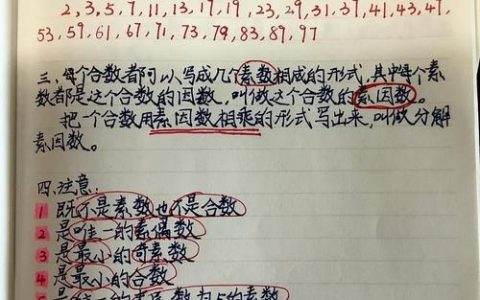 2,3,5,7,11,13,17,19,23,29,31,37,41,43,47,
53,59,61,67,71,73,79,83,89,97
三、每个合数都可以写成几个素数相成的形式,其中每个素
数都是这个合数的因数,叫做这个合数的素因数。
把一个合数用素因数相乘的形式写出来,叫做分解
素因数。
四、注意:
1 既不是素数也不是合数
2 是唯一的素偶数
3 是最小的奇素数
4 是最小的合数
5 是唯一的 数为5的素数